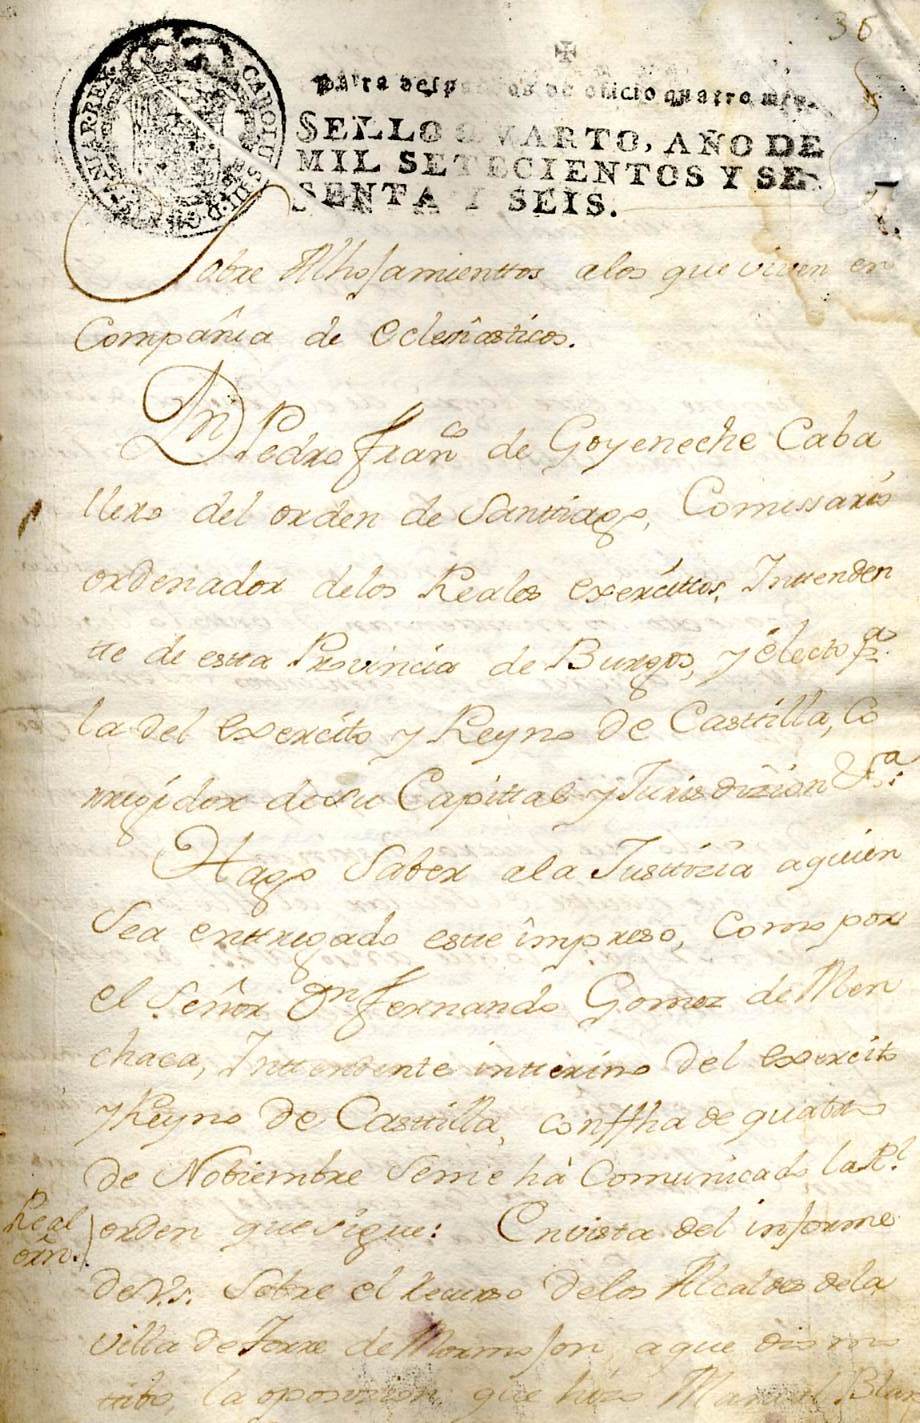 36
Para despachos de oficio quatro mrs.
SELLO QVARTO, AÑO DE
MIL SETECIENTOS Y SE-
SENTA Y SEIS.
CAROLUS III D. G. HISPANIAR. REX
Sobre Alhojamienttos alos que viven en
Compañia de eclesiasticos.
Dn Pedro Franco de Goyeneche Caba
llero del orden de Santtiago, Comissario
ordenador delos Reales exercittos, Inttenden
tte de estta Provincia de Burgos, y electo pa.
la del exercito y Reyno de Casttilla, Co
rregidor de su Capittal y Jurisdizion &a:
Hago Saber ala Justtizia a quien
Sea enttregado estte impreso, Como por
el Señor Dn Fernando Gomez de Men
chaca, Inttendente intterino del exercito
y Reyno de Casttilla, con ffha de quatro
de Nobiembre Seme hà Comunicado la Rl.
Real
orn.
orden que sigue: Envista del informe
de V.S. Sobre el recurso delos Alcaldes dela
villa de Torre de Mormojon, a que dio mo
tibo, la oposizion que hizo Manuel Blan